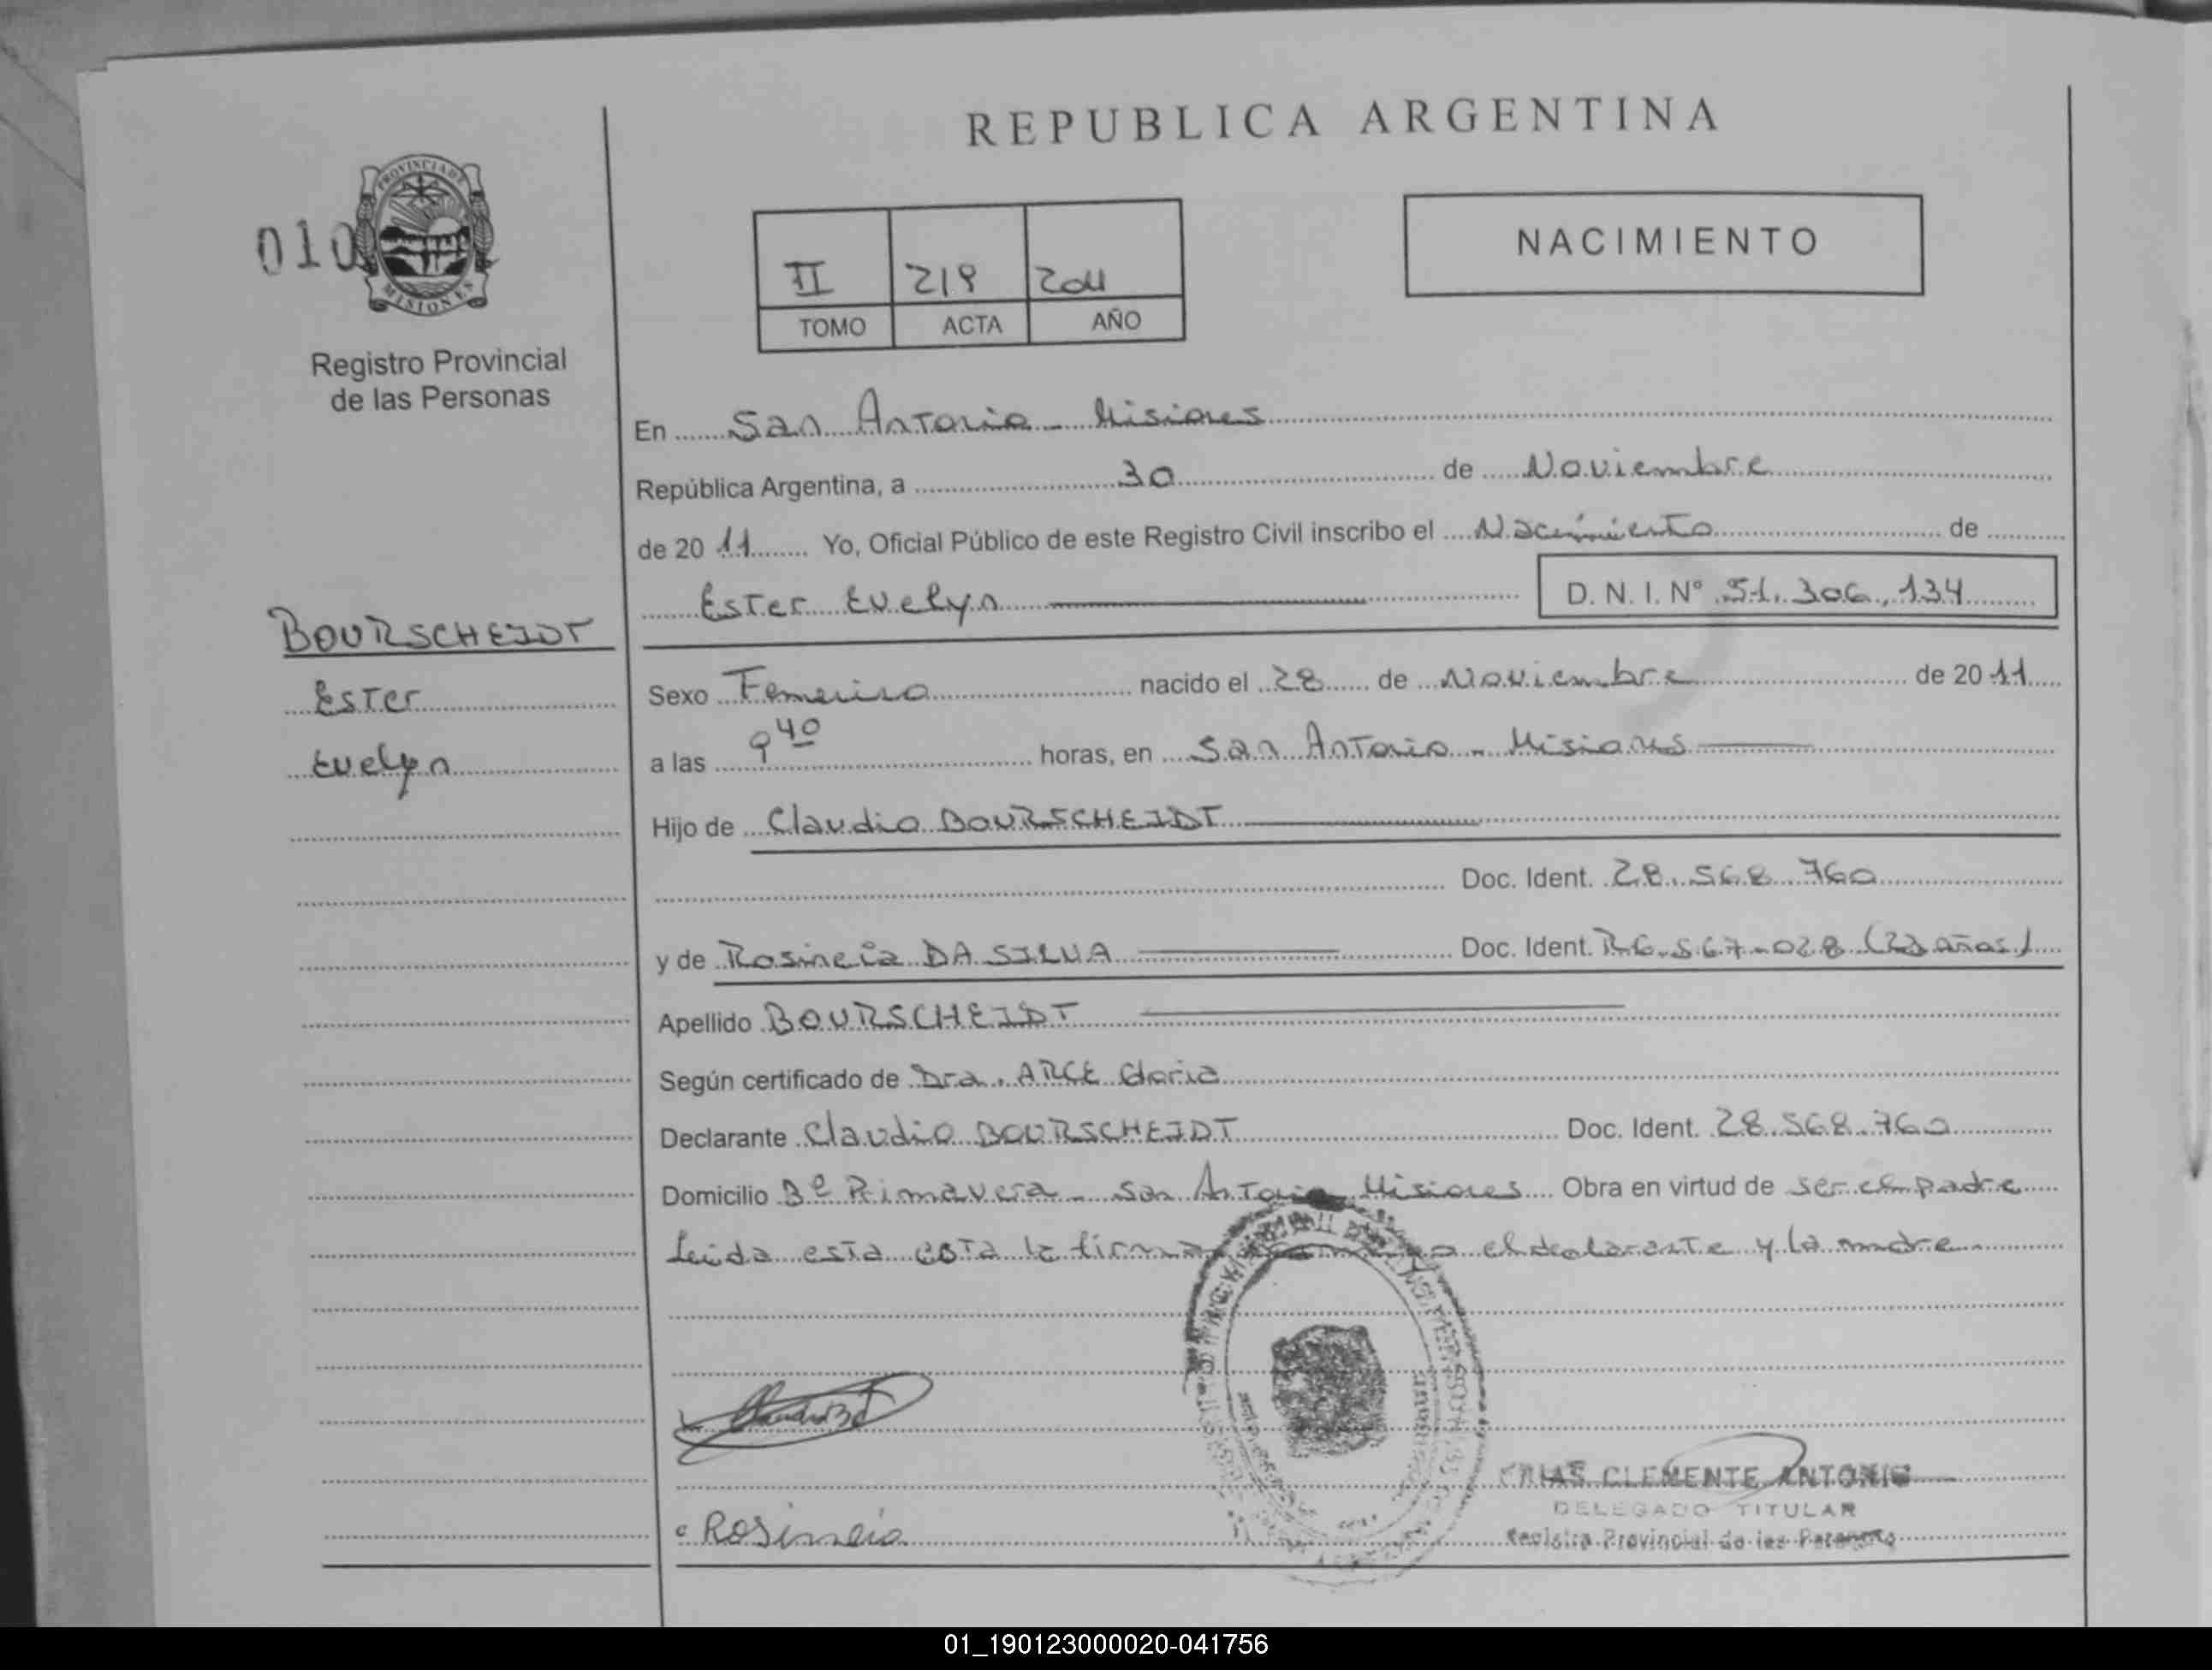 REPUBLICA ARGENTINA
010
PROVINCIA DE MISIONES
Registro Provincial
de las Personas
II 218 2011
TOMO ACTA AÑO
NACIMIENTO
En San Antonio - Misiones
República Argentina, a 30 de Noviembre
de 20 11 Yo, Oficial Público de este Registro Civil inscribo el Nacimiento de
Ester Evelyn D. N. I. N° 51.306.134
BOURSCHEIDT
Ester
Evelyn
Sexo Femenino nacido el 28 de Noviembre de 20 11
a las 9 40 horas, en San Antonio - Misiones
Hijo de Claudio BOURSCHEIDT
Doc. Ident. 28.568.760
y de Rosineia DA SILVA Doc. Ident. años)
Apellido BOURSCHEIDT
Según certificado de Dra. ARCE Gloria
Declarante Claudio BOURSCHEIDT Doc. Ident. 28.568.760
Domicilio Bº Primavera - San Antonio Misiones Obra en virtud de ser el padre
Leida esta acta la firma el declarante y la madre
Rosineia
CLEMENTE ANTONIO
DELEGADO TITULAR
Registro Provincial de las Personas
01_190123000020-041756